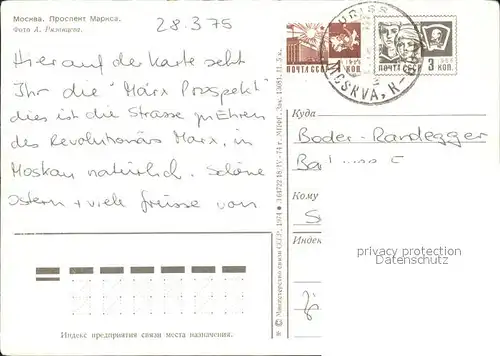 Москва. Проспект Маркса.
Фото А. Рязанцева.
28.3.75
Hier auf der Karte seht
Ihr die "Marx Prospekt"
dies ist die Strasse zu Ehren
des Revolutionärs Marx, in
Moskau natürlich. Schöne
Ostern + viele Grüsse von
ПОЧТА СССР КОП.
ПОЧТА СССР 3 КОП.
MOCKVA,
© Министерство связи СССР, 1974
Куда
Boder-Randegger
Кому
Индек
privacy protection
Datenschutz
Индекс предприятия связи места назначения.